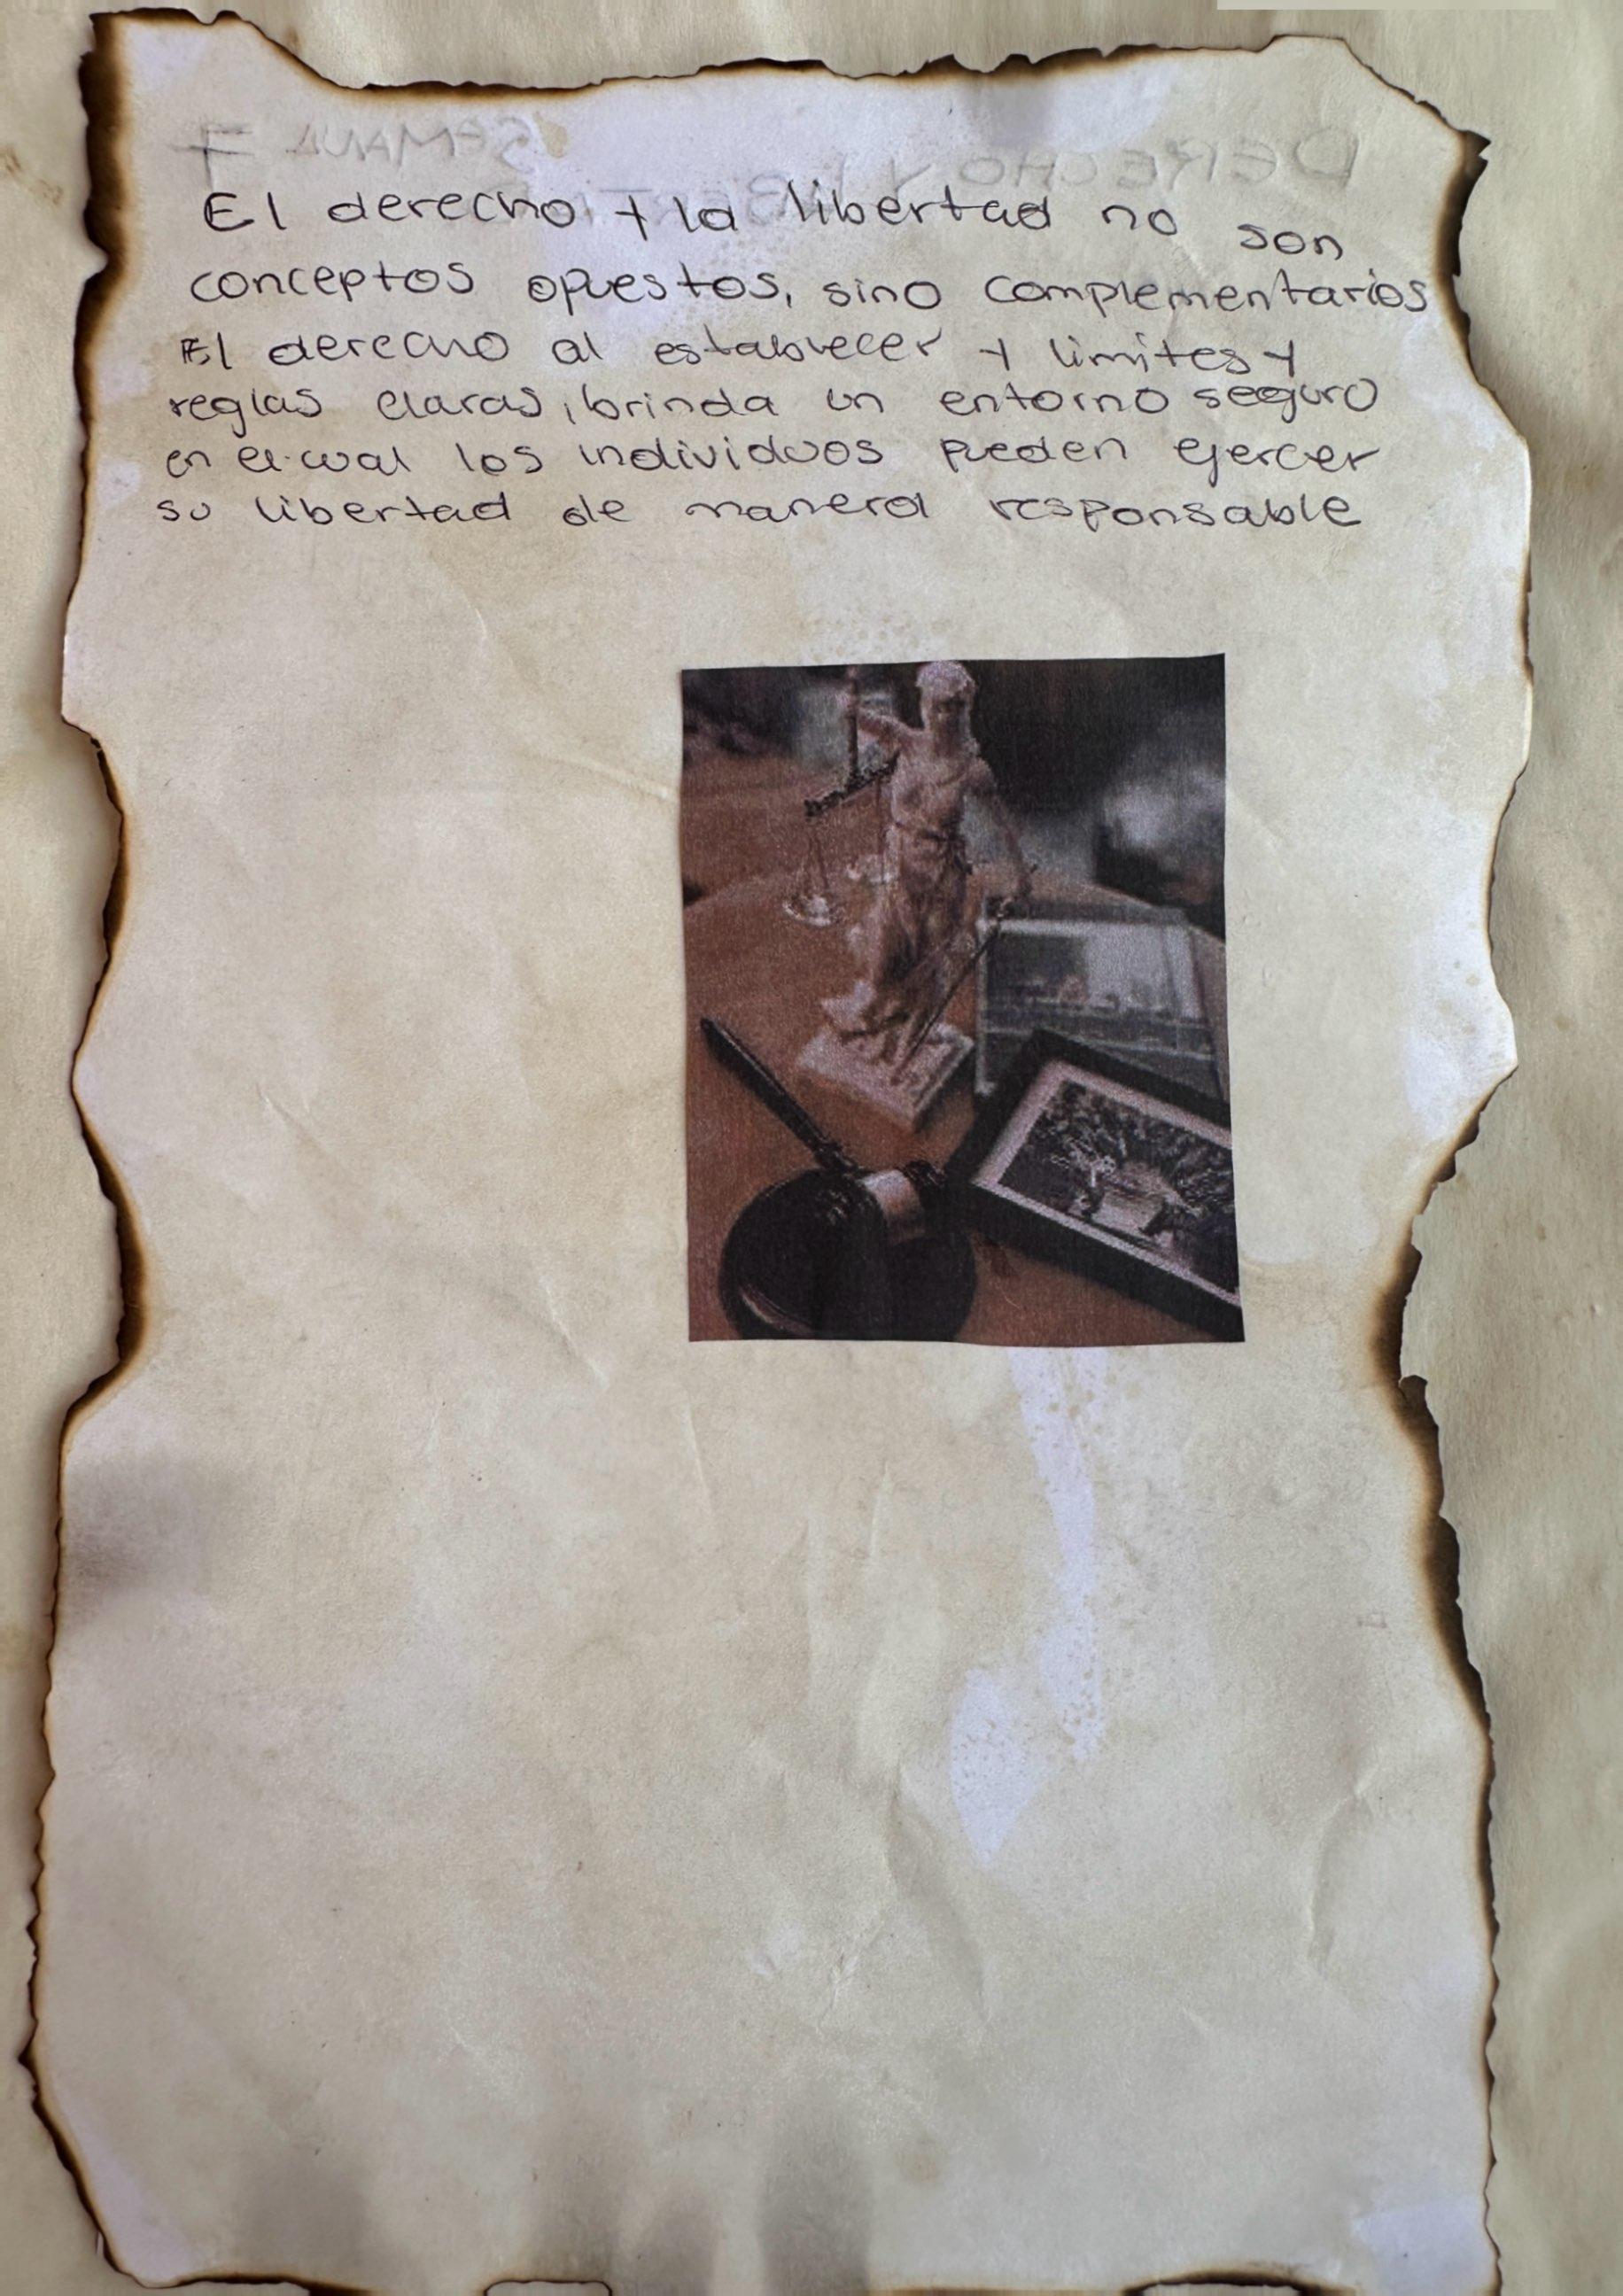 El derecho y la libertad no son
conceptos opuestos, sino complementarios
El derecho al establecer y limites y
reglas claras, brinda un entorno seguro
en el cual los individuos pueden ejercer
su libertad de manera responsable